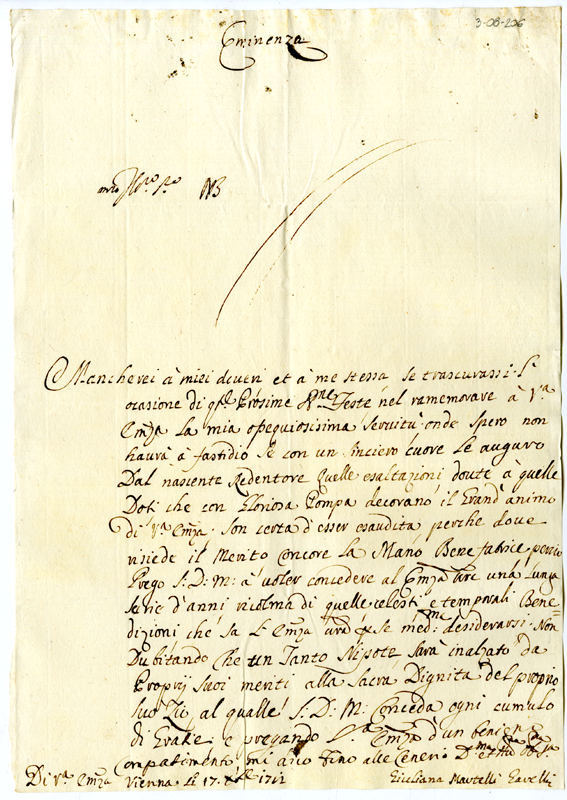 3-08-206
Eminenza
Mancherei à miei doveri et à me stessa se trascurassi l'
ocasione di Prosime Feste nel ramemorare à V.a
Emza la mia osequiosissima servitù onde spero non
havrà à fastidio se con un sinciero cuore le auguro
Dal nascente Redentore quelle esaltazioni dovute a quelle
Doti che con Gloriosa Pompa decorano il Grand'animo
di V.a Emza. Son certa d'esser esaudita perche dove
risiede il Merito concore la Mano Bene fatrice perciò
Prego S: D: M: à voler concedere al Emza una Lunga
serie d'anni ricolma di quelle celesti e temporali Bene=
dizioni che sa L'Emza se med.me desiderarsi. Non
Dubitando che un Tanto Nipote sarà inalzato da
Proprij suoi meriti alla Sacra Dignità del proprio
suo Zio, al qualle S: D: M: Conceda ogni cumulo
di Grazie e pregando V.a Emza d'un benigno
compatimento mi
Di V.a Emza Vienna li 17. 1712 Giuliana Martelli